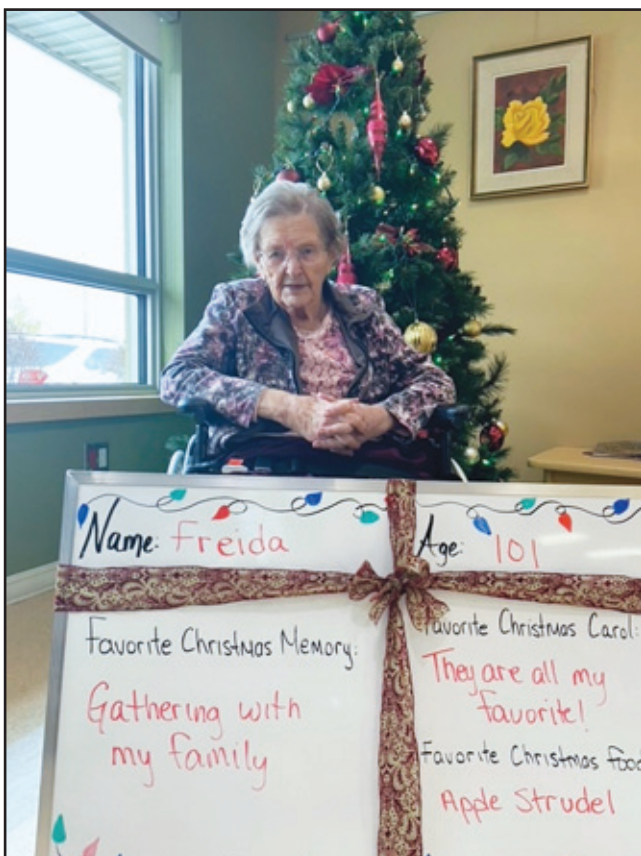 Name: Freida
Age: 101
Favorite Christmas Memory:
Gathering with
my family
Favorite Christmas Carol:
They are all my
favorite!
Favorite Christmas Food
Apple Strudel